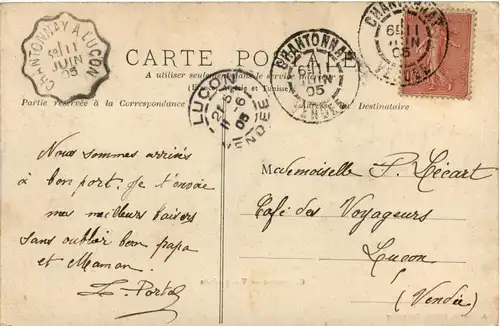 CHANTONNAY A LUÇON
11
JUIN
05
CARTE POSTALE
A utiliser seulement dans le service
Partie réservée à la Correspondance
Adresse du Destinataire
CHANTONNAY
11
JUIN
05
VENDÉE
CHANTONNAY
11
JUIN
05
VENDÉE
LUÇON
11 6
05
VENDÉE
Nous sommes arrivés
à bon port. Je t'envoie
mes meilleurs baisers
sans oublier bon papa
et Maman.
Mademoiselle P. Lécart
Café des Voyageurs
Luçon
(Vendée)